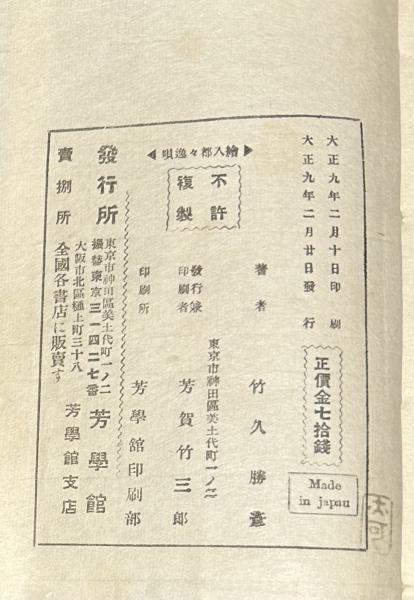 大正九年二月十日印刷
大正九年二月廿日發行
正價金七拾錢
Made
in japan
▶繪入都々逸唄◀
不許
複製
著者 竹久勝彥
東京市神田區美土代町一ノ二
發行兼
印刷者 芳賀竹三郎
印刷所 芳學舘印刷部
發行所 東京市神田區美土代町一ノ二
振替東京三一四二七番 芳學館
大阪市北區樋上町三十八 芳學館支店
賣捌所 全國各書店に販賣す